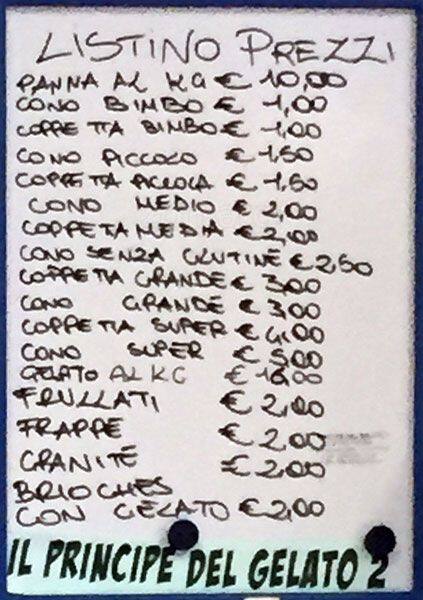 LISTINO PREZZI
PANNA AL KG € 10,00
CONO BIMBO € 1,00
COPPETTA BIMBO € 1,00
CONO PICCOLO € 1,50
COPPETTA PICCOLA € 1,50
CONO MEDIO € 2,00
COPPETA MEDIA € 2,00
CONO SENZA GLUTINE € 2,50
COPPETTA GRANDE € 3,00
CONO GRANDE € 3,00
COPPETTA SUPER € 4,00
CONO SUPER €
GELATO AL KG €
FRULLATI € 2,00
FRAPPÈ € 2,00
GRANITE € 2,00
BRIOCHES
CON GELATO € 2,00
IL PRINCIPE DEL GELATO 2